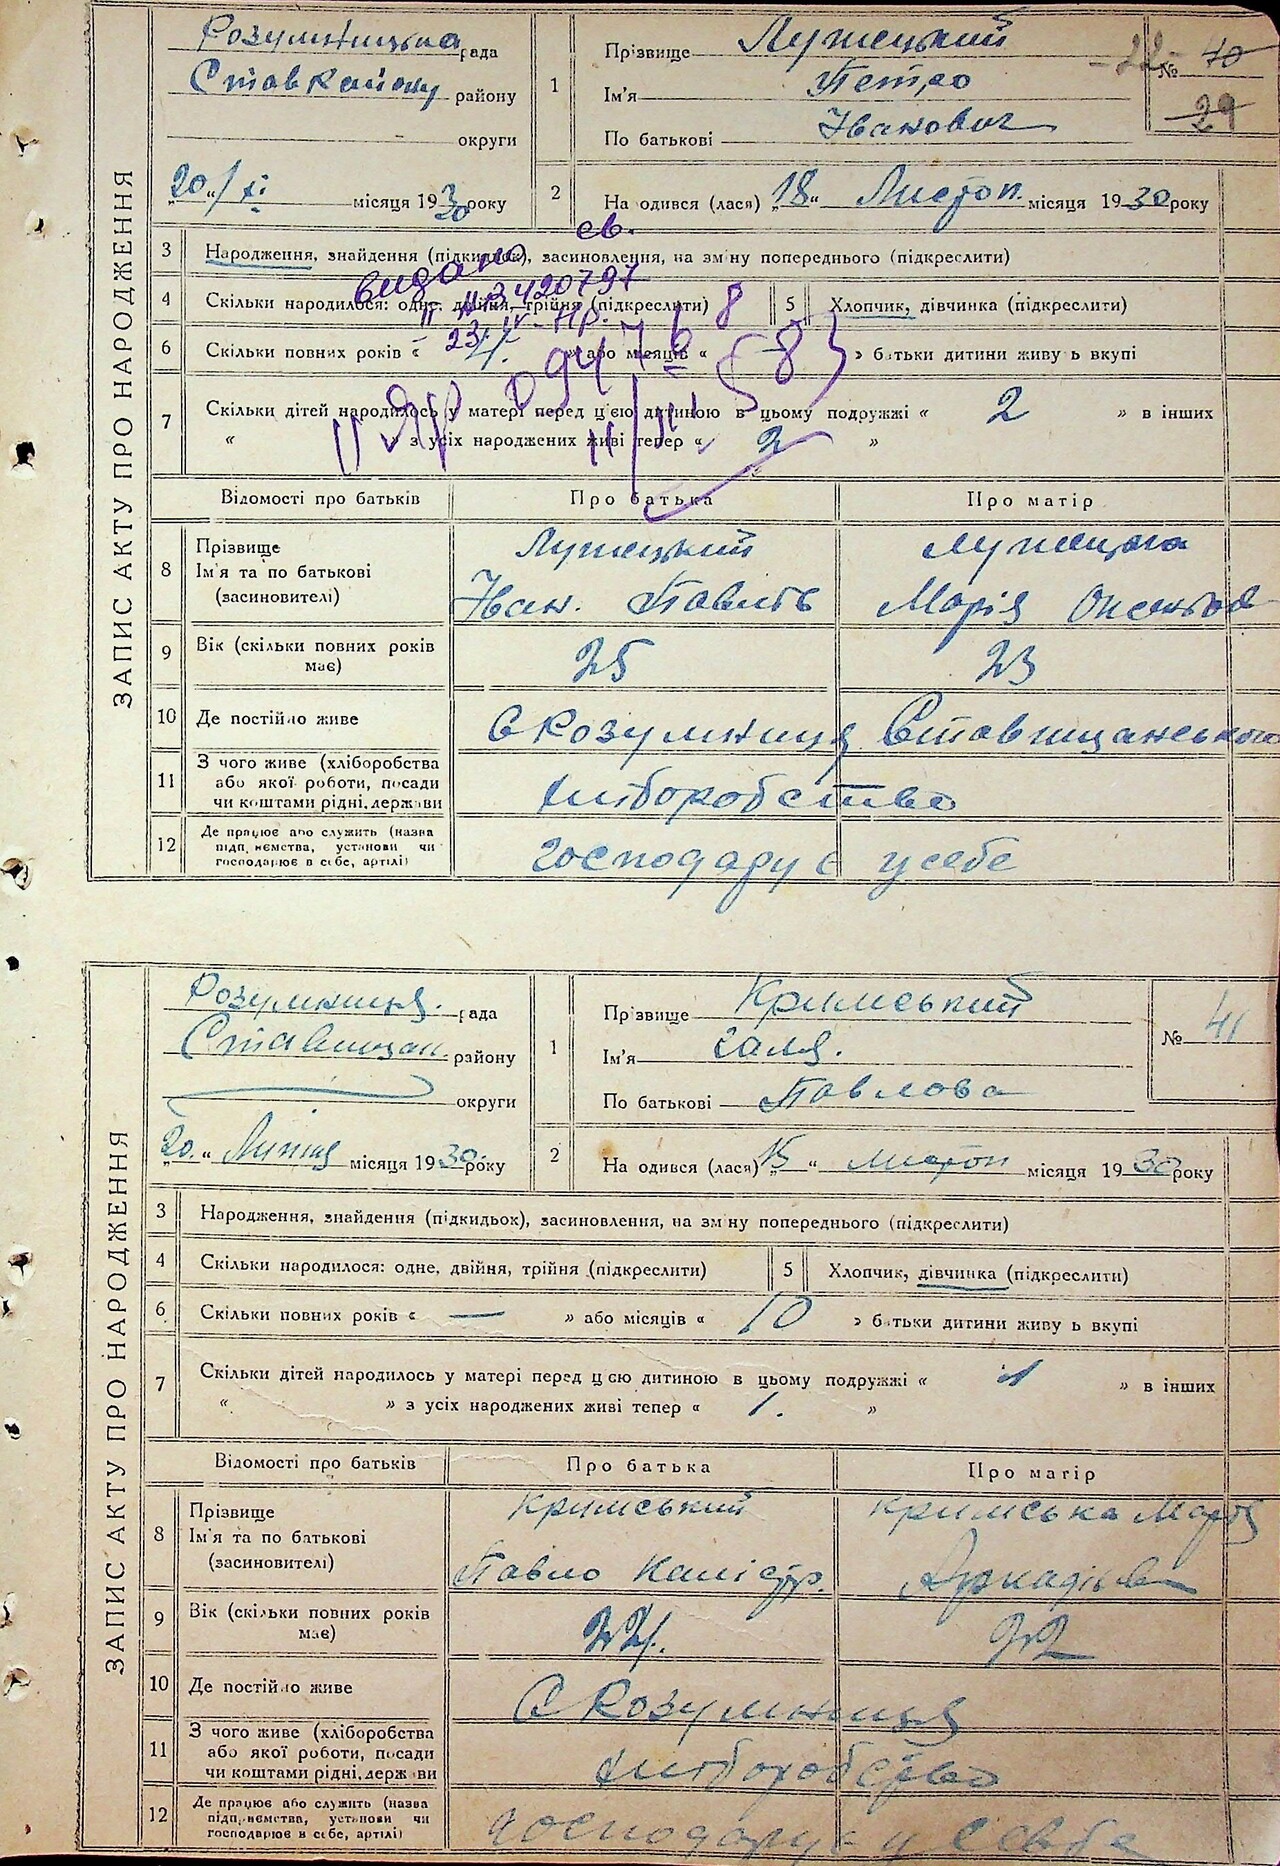 ЗАПИС АКТУ ПРО НАРОДЖЕННЯ
Розумницька рада
Ставрайону району
округи
"20"/XI місяця 1930 року
1
Прізвище Лужецький
Ім'я Петро
По батькові Іванович
№ 40
-22-
29
2 На одився (лася) "18" Листоп. місяця 1930 року
3 Народження, знайдення (підкидьок), засиновлення, на зміну попереднього (підкреслити)
видано св.
4 Скільки народилося: одне, двійня, трійня (підкреслити)
5 Хлопчик, дівчинка (підкреслити)
6 Скільки повних років « 4. » або місяців « » батьки дитини живуть вкупі
7 Скільки дітей народилось у матері перед цією дитиною в цьому подружжі « 2 » в інших
« » з усіх народжених живі тепер « 2 »
Відомості про батьків Про батька Про матір
8 Прізвище Ім'я та по батькові (засиновителі)
Лужецький Лужецька
Іван. Павлов Марія
9 Вік (скільки повних років має) 25 23
10 Де постійно живе с Розумниця Ставищанського
11 З чого живе (хліборобства або якої роботи, посади чи коштами рідні, держави
хліборобство
12 Де працює або служить (назва підприємства, установи чи господарює в себе, артілі)
господарує у себе
ЗАПИС АКТУ ПРО НАРОДЖЕННЯ
Розумниця. рада
Ставищан. району
округи
"20." Липня місяця 1930. року
1
Прізвище Кримський
Ім'я Галя.
По батькові Павлова
№ 41
2 На одився (лася) "15" листоп місяця 1930 року
3 Народження, знайдення (підкидьок), засиновлення, на зміну попереднього (підкреслити)
4 Скільки народилося: одне, двійня, трійня (підкреслити)
5 Хлопчик, дівчинка (підкреслити)
6 Скільки повних років « — » або місяців « 10 » батьки дитини живуть вкупі
7 Скільки дітей народилось у матері перед цією дитиною в цьому подружжі « 1 » в інших
« » з усіх народжених живі тепер « 1. »
Відомості про батьків Про батька Про матір
8 Прізвище Ім'я та по батькові (засиновителі)
Кримський Кримська Марія
Павло Калістр. Аркадієва
9 Вік (скільки повних років має) 22
10 Де постійно живе с Розумниця
11 З чого живе (хліборобства або якої роботи, посади чи коштами рідні, держави
хліборобство
12 Де працює або служить (назва підприємства, установи чи господарює в себе, артілі)
господарує у себе